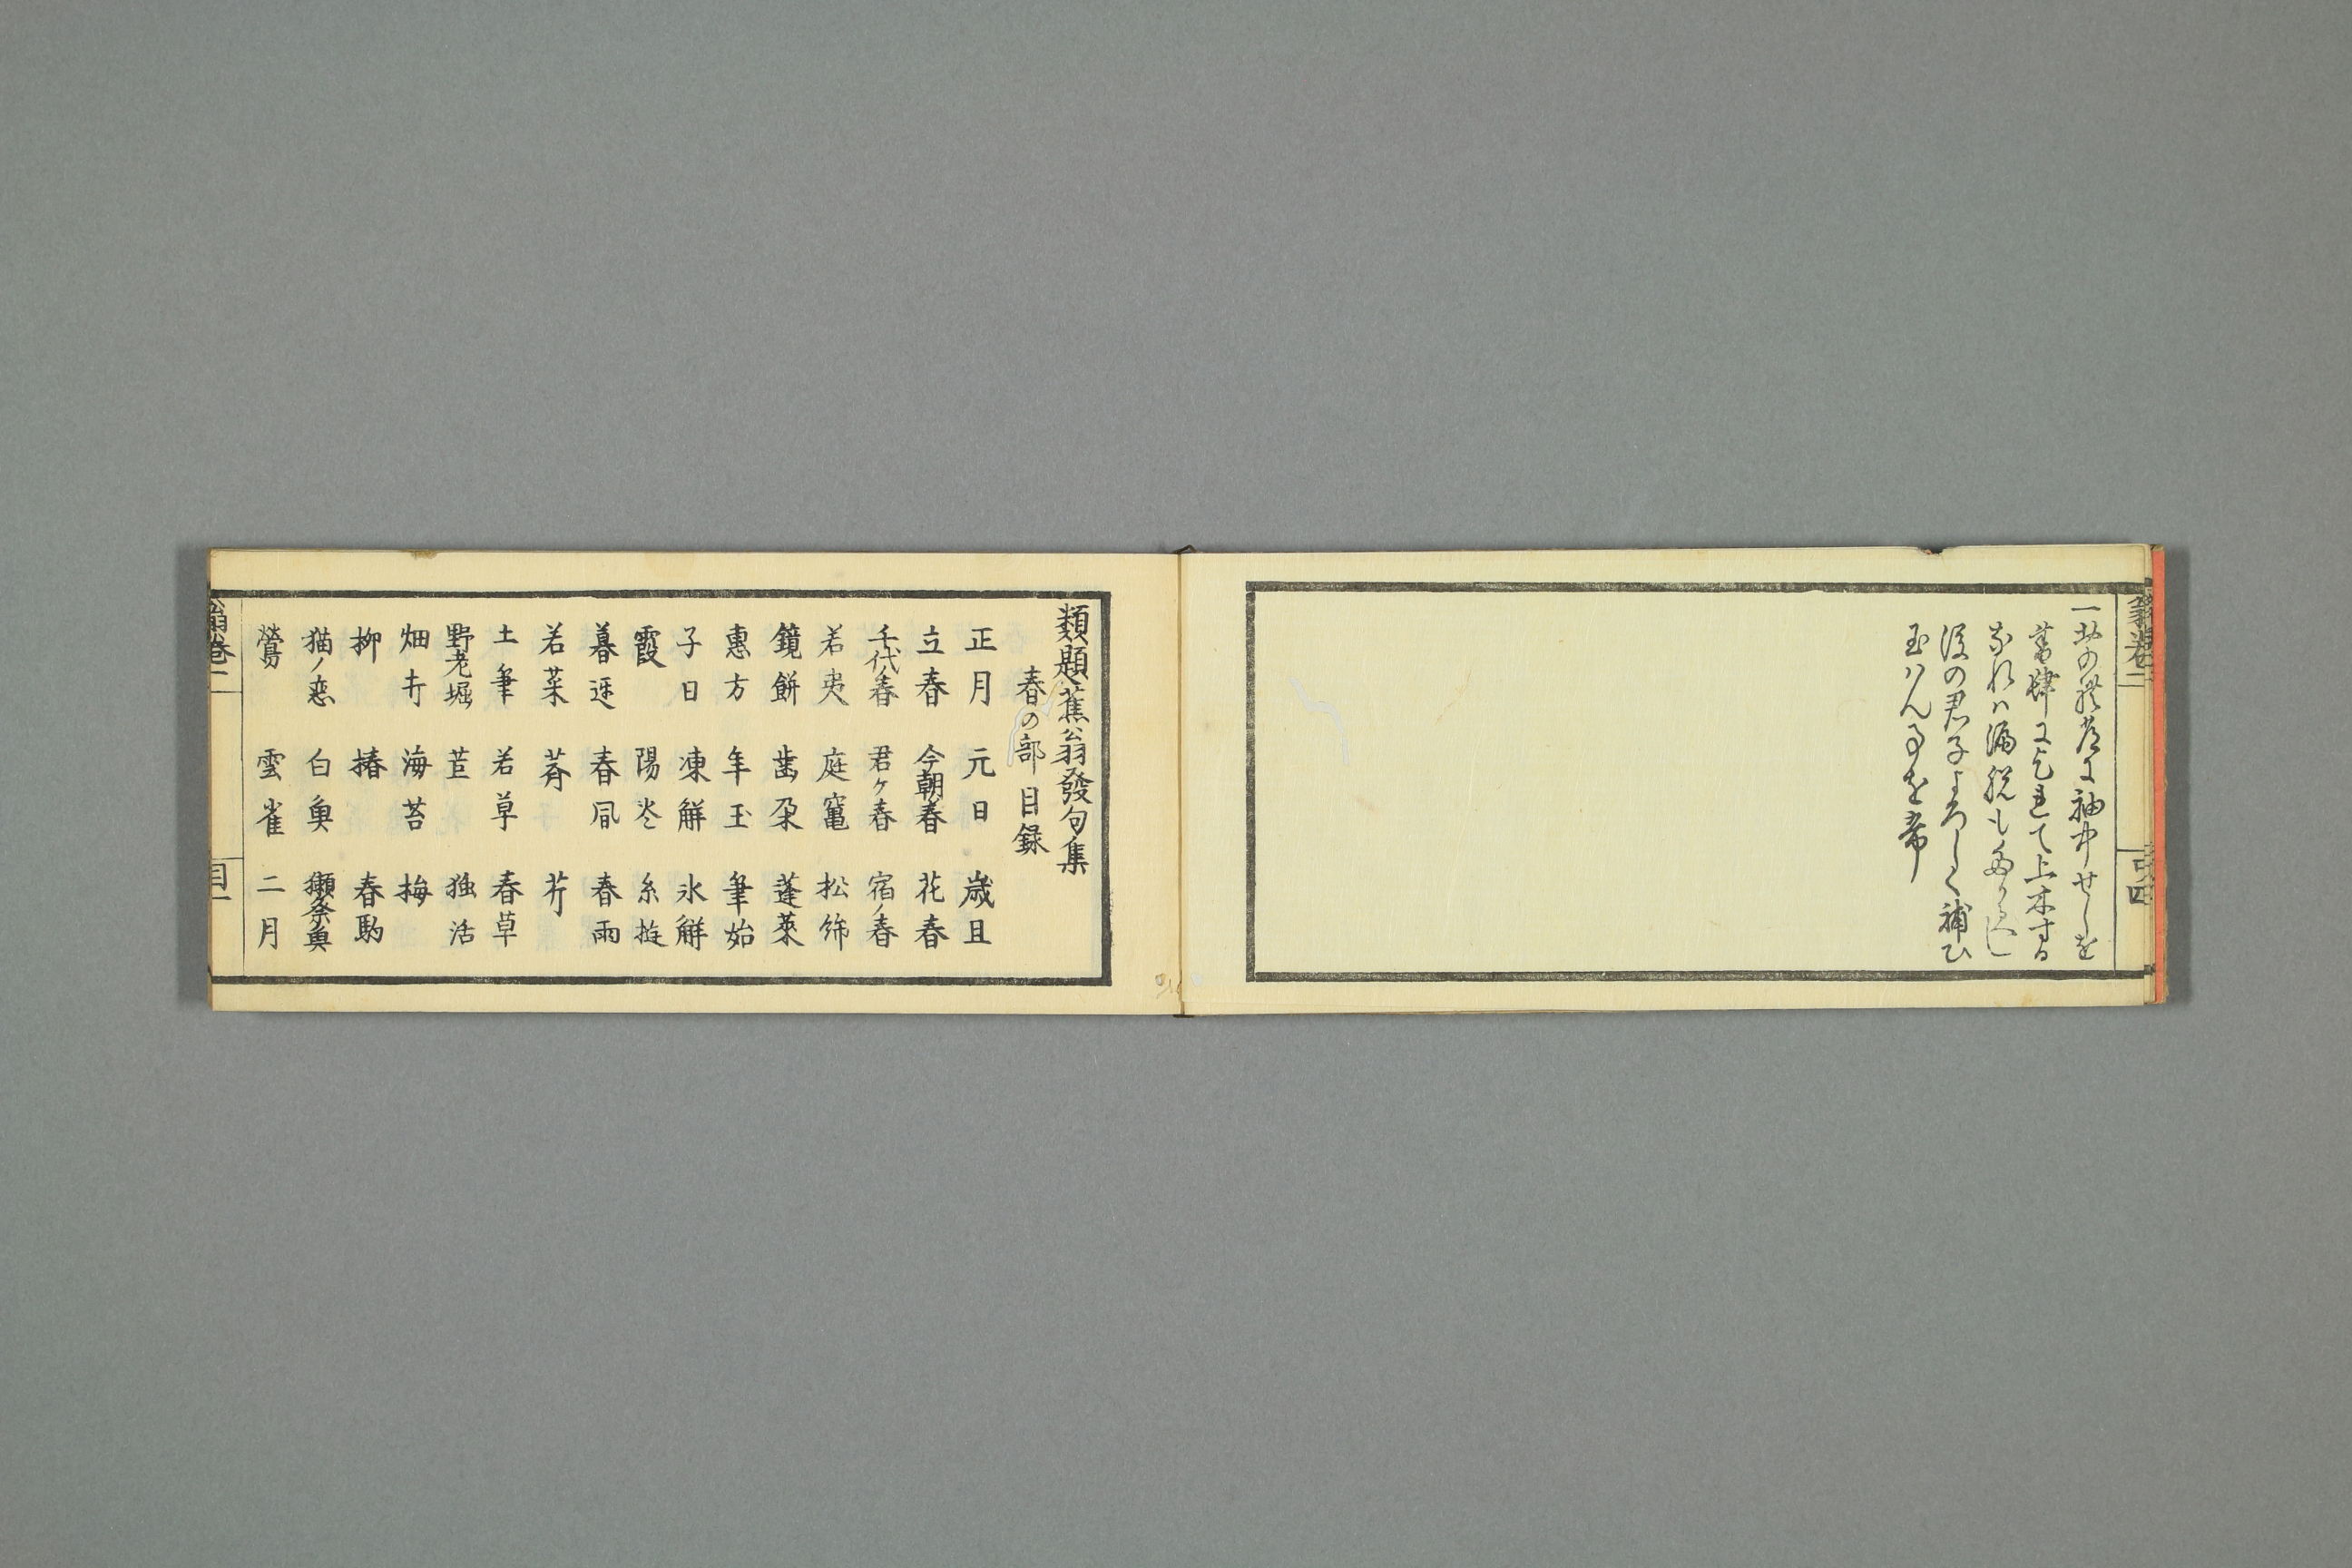 一此の
書肆に乞れて上木する
なれハ漏脱も多
後の君子よろしく補ひ
玉はん事を希
類題蕉翁發句集
春の部目録
正月 元日 歳旦
立春 今朝春 花春
千代春 君ヶ春 宿ノ春
若夷 庭竃 松飾
鏡餅 歯朶 蓬莱
惠方 年玉 筆始
子日 凍解 氷解
霞 陽炎 糸遊
暮遅 春風 春雨
若菜 薺 芹
土筆 若草 春草
野老堀 苣 独活
畑打 海苔 梅
柳 椿 春駒
猫ノ恋 白魚 獺祭魚
鶯 雲雀 二月
翁巻一
目一